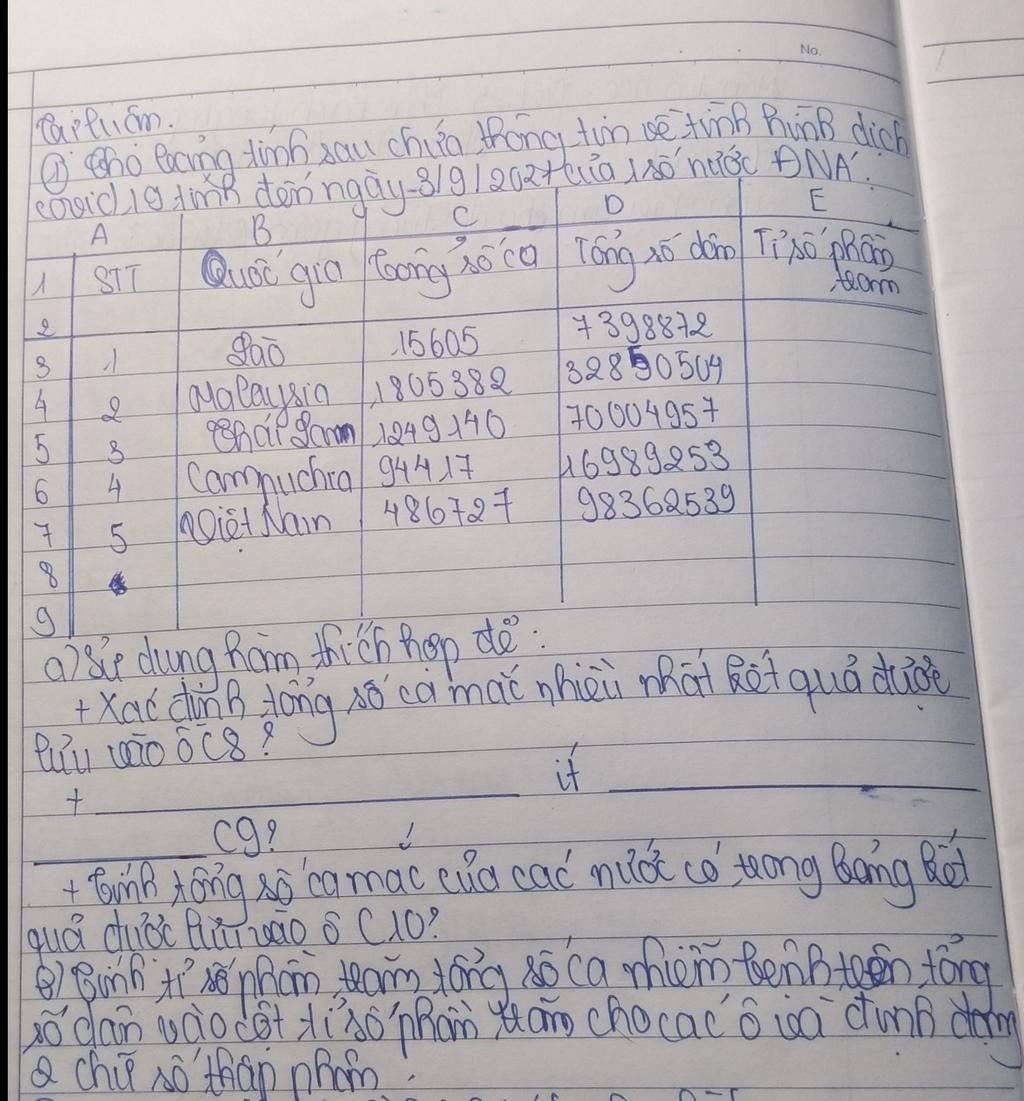 No.
Tự luận.
① Cho bảng tính sau chứa thông tin về tình hình dịch
covid 19 tính đến ngày 3/9/2021 của 1 số nước ĐNÁ.
A B C D E
1 STT Quốc gia Tổng số ca Tổng số dân Tỉ số phần trăm
2
3 1 Lào 15605 7398872
4 2 Malaysia 1805382 32850504
5 3 Thái Lan 1249140 70004957
6 4 Campuchia 94417 16989253
7 5 Việt Nam 486727 98362539
8
9
a) Sử dụng hàm thích hợp để:
+ Xác định tổng số ca mắc nhiều nhất kết quả được
lưu vào ô C8?
+ ít
C9?
+ Tính tổng số ca mắc của các nước có trong bảng kết
quả được lưu vào ô C10?
b) Tính tỉ số phần trăm tổng số ca nhiễm bệnh trên tổng
số dân vào cột tỉ số phần trăm cho các ô và định dạng
2 chữ số thập phân.